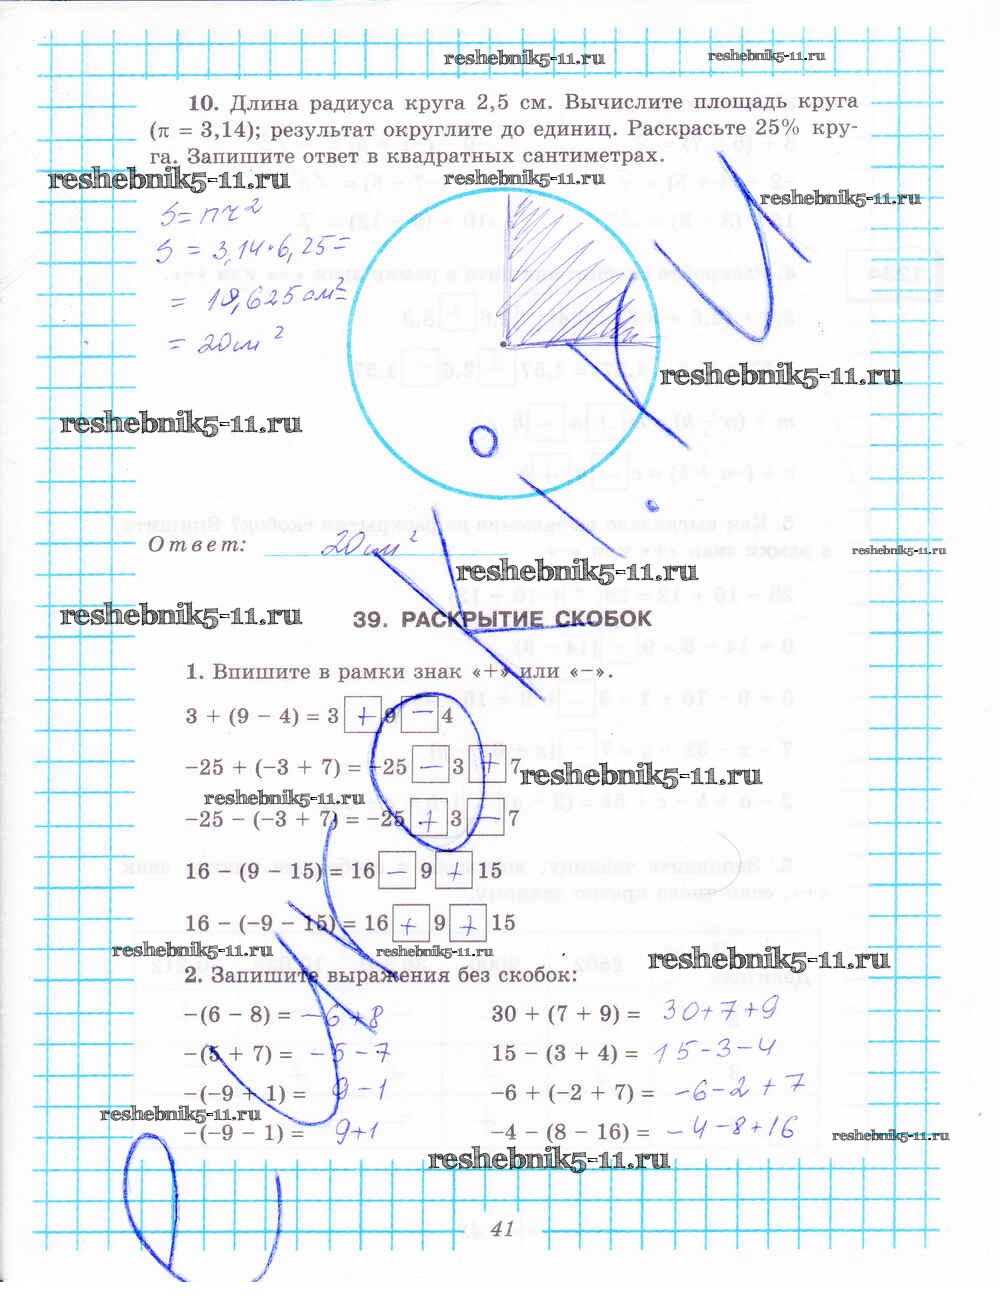 reshebnik5-11.ru reshebnik5-11.ru
10. Длина радиуса круга 2,5 см. Вычислите площадь круга
(π = 3,14); результат округлите до единиц. Раскрасьте 25% кру-
га. Запишите ответ в квадратных сантиметрах.
reshebnik5-11.ru reshebnik5-11.ru
reshebnik5-11.ru
S = πr²
S = 3,14·6,25 =
= 19,625 см² =
= 20 см²
reshebnik5-11.ru
reshebnik5-11.ru
Ответ: 20 см²
reshebnik5-11.ru
reshebnik5-11.ru
reshebnik5-11.ru
39. РАСКРЫТИЕ СКОБОК
1. Впишите в рамки знак «+» или «−».
3 + (9 − 4) = 3 + 9 − 4
−25 + (−3 + 7) = −25 − 3 + 7
reshebnik5-11.ru
reshebnik5-11.ru
−25 − (−3 + 7) = −25 + 3 − 7
16 − (9 − 15) = 16 − 9 + 15
16 − (−9 − 15) = 16 + 9 + 15
reshebnik5-11.ru reshebnik5-11.ru reshebnik5-11.ru
2. Запишите выражения без скобок:
−(6 − 8) = −6+8 30 + (7 + 9) = 30+7+9
−(5 + 7) = −5−7 15 − (3 + 4) = 15−3−4
−(−9 + 1) = 9−1 −6 + (−2 + 7) = −6−2+7
reshebnik5-11.ru
−(−9 − 1) = 9+1 −4 − (8 − 16) = −4−8+16
reshebnik5-11.ru
reshebnik5-11.ru
41